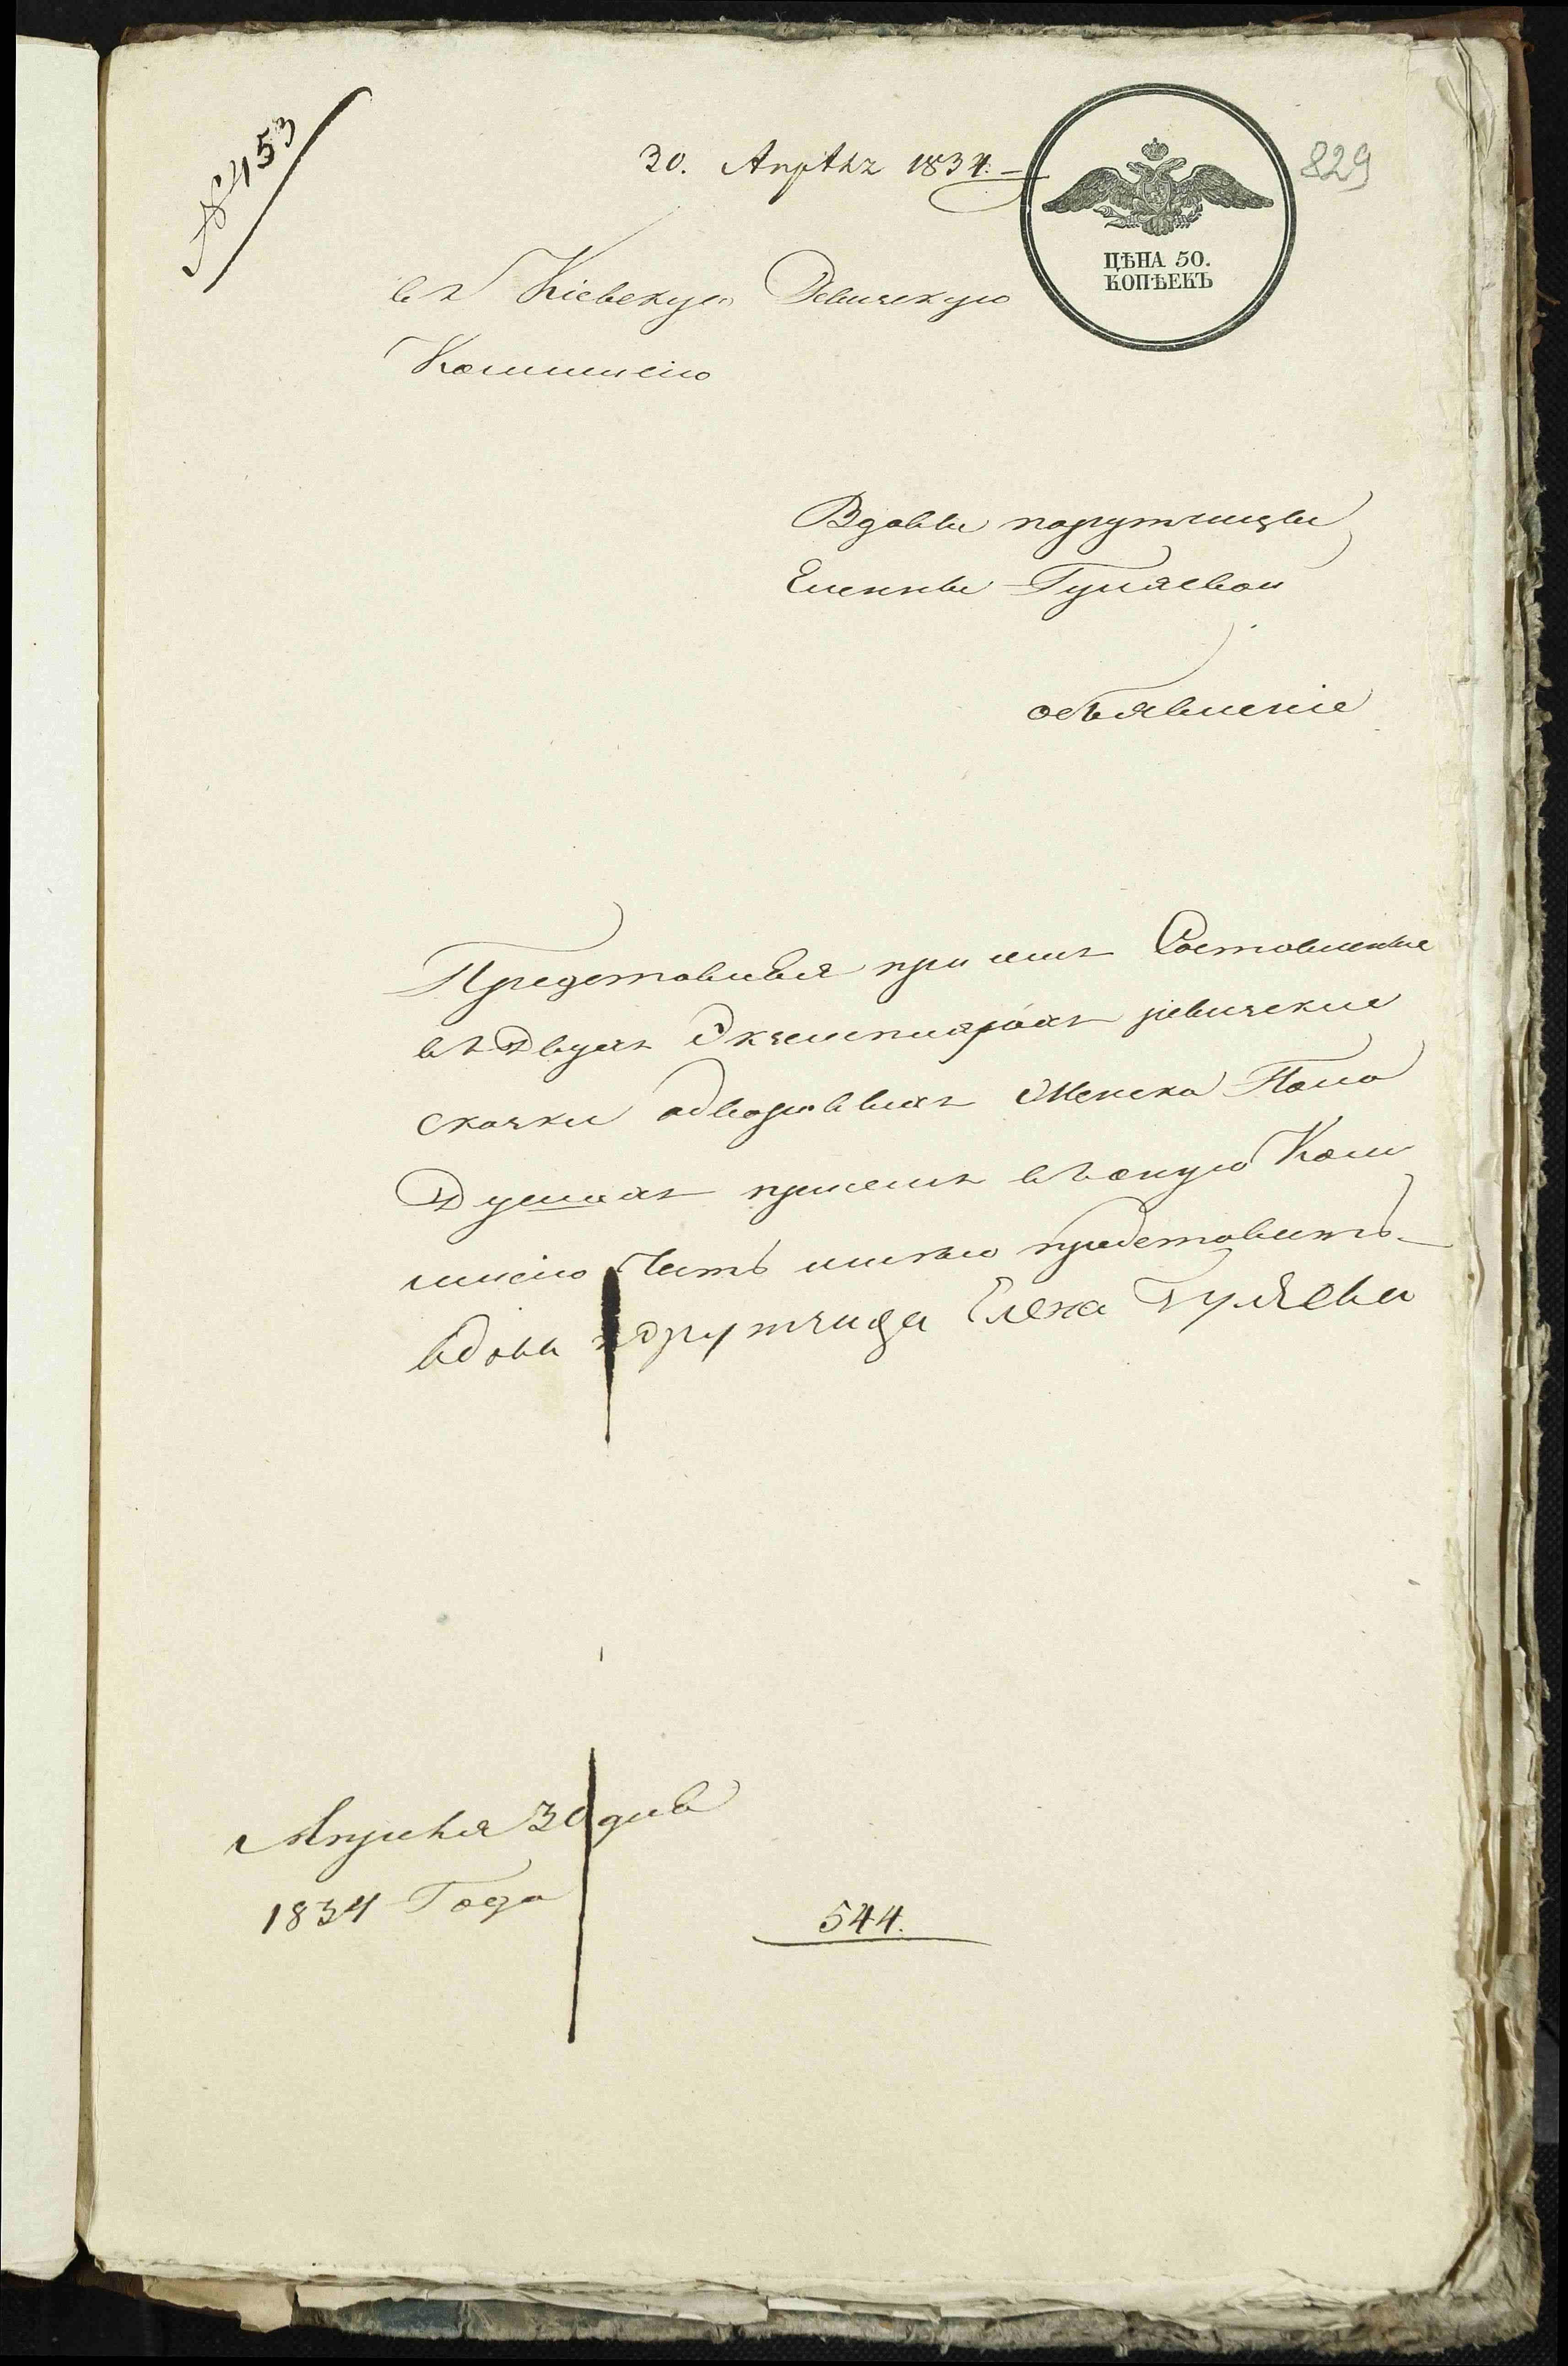 № 453
30. Апрѣлѧ 1834.
829
ЦѢНА 50.
КОПѢЕКЪ
въ Кіевскую Ревизскую
Коммисію
Вдовы порутчицы
Елены Гуляевой
объявленіе
Представляя при семъ Составленые
въ Двухъ Экземплярахъ ревизские
скаски одворовыхъ Женска Пола
Душахъ присемъ въ оную Ком
мисію Честь имѣю представить
вдова порутчица Елена Гуляева
Апреля 30 дня
1834 Года
544.